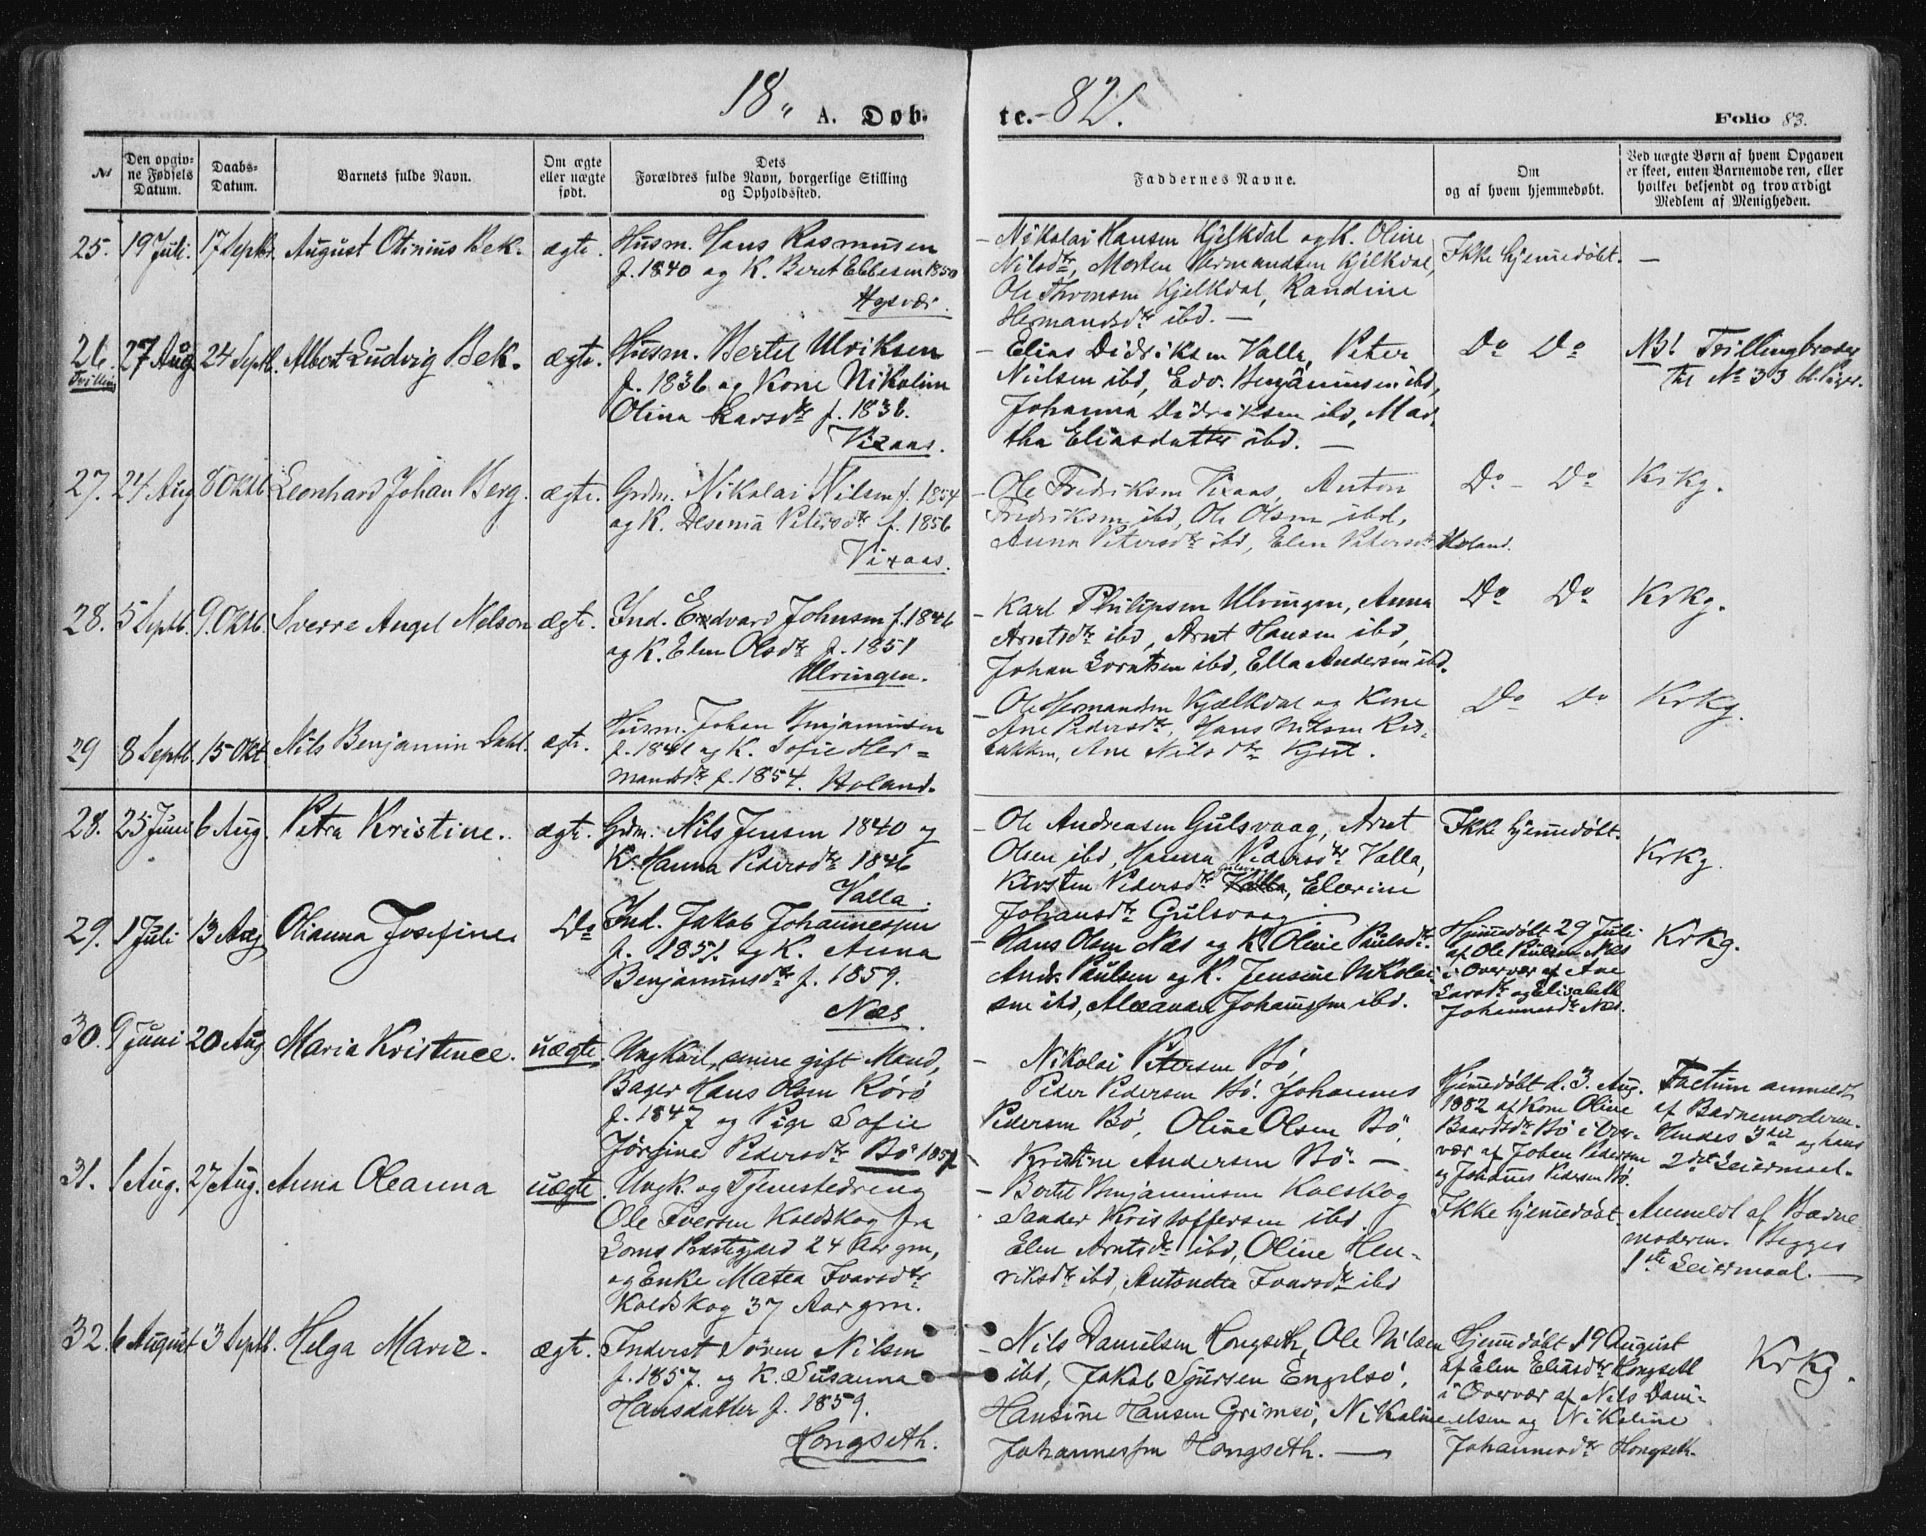 18 A. Døb-
te. 82.
Folio 83.
No
Den opgiv-
ne Fødsels
Datum.
Daabs-
Datum.
Barnets fulde Navn.
Om ægte
eller uægte
født.
Dets
Forældres fulde Navn, borgerlige Stilling
og Opholdssted.
Faddernes Navne.
Om
og af hvem hjemmedøbt.
Ved uægte Børn af hvem Opgaven
er skeet, enten Barnemoderen, eller
hvilket bekjendt og troværdigt
Medlem af Menigheden.
25. 19 Juli. 17 Septbr. August Otinius Bek. ægte.
Husm. Hans Rasmusen
f. 1840 og K. Beret Ebbesen 1850
- Nikolai Hansen Kjelkdal og K. Oline
Nilsdtr, Morten Hermandsen Kjelkdal,
Ole Thronsen Kjelkdal, Randine
Hermandsdtr ibd. -
Ikke hjemmedøbt. -
26. 27 Aug 24 Septb. Albert Ludvig Bek. ægte.
Tvilling
Husm. Bertel Ulriksen
f. 1836 og Kone Nikoline
Olina Larsdtr f. 1836.
Vixaas.
- Elias Didriksen Valla, Peter
Nielsen ibd, Edv. Benjaminsen ibd,
Johanna Didriksen ibd, Mar-
tha Eliasdatter ibd. -
Do Do
NB! Tvillingbroder
til No 33 bl. Piger.
27. 24 Aug 8 Oktb. Leonhard Johan Berg. ægte.
Grdm. Nikolai Nilsen f. 1854
og K. Desenia Petersdtr f. 1856
Vixaas.
- Ole Fredriksen Vixaas, Anton
Fredriksen ibd, Ole Olsen ibd,
Anna Petersdtr ibd, Elen Petersdtr Holand.
Do - Do
KrKg.
28. 5 Septb. 9. Oktb. Sverre Angel Nelson ægte.
Ind. Edvard Johnsen f. 1846
og K. Elen Olsdtr f. 1851
Ulvingen.
- Karl Philipsen Ulvingen, Anna
Arntsdtr ibd, Arnt Hansen ibd,
Johan Lorntsen ibd, Ella Andersen ibd.
Do Do
KrKg.
29 8 Septb. 15 Okt. Nils Benjamin Dahl. ægte.
Husm. Johan Benjaminsen
f. 1841 og K. Sofie Her-
mandsdtr f. 1854. Holand.
- Ole Hermandsen Kjælkdal og Kone
Ane Pedersdtr, Hans Nilsen Ris-
bakken, Ane Nilsdtr
Do Do
KrKg.
28. 25 Juni 6 Aug. Petra Kristine. ægte.
Grdm. Nils Jensen 1840 og
K. Hanna Pedersdtr 1846
Valla.
- Ole Andreasen Gulsvaag, Arnt
Olsen ibd, Hanna Pedersdtr Valla,
Kirsten Pedersdtr Valla, Elerine
Johansdtr Gulsvaag.
Ikke hjemmedøbt.
KrKg.
29. 1 Juli 13 Aug. Olianna Josefine. Do
Ind. Jakob Johannessen
f. 1851. og K. Anna
Benjaminsdtr f. 1859.
Næs.
- Hans Olsen Næs og K. Oline Paulsdtr.
Andr. Paulsen og K. Jensine Nikolai-
sen ibd, Alexander Johannessen ibd.
Hjemmedøbt 29 Juli
af Ole Paulsen Næs
i Overvær af Ane
Larsdtr og Elisabeth
Johannesdtr Næs.
KrKg.
30. 9 Juni 20 Aug Maria Kristence. uægte.
Ungkarl, senere gift Mand,
Bager Hans Olsen Rörö
f. 1847 og Pige Sofie
Jörgine Pedersdtr Bö 1857
- Nikolai Petersen Bö,
Peder Pedersen Bö. Johannes
Pedersen Bö, Oline Olsen Bö,
Kristine Andersen Bö. -
Hjemmedøbt d. 3. Aug.
1882 af Kone Oline
Baardsdtr Bö i Over-
vær af Johen Pedersen
og Johannes Pedersen Bö.
Factum anmeldt
af Barnemoderen.
Hendes 3die og hans
2det Leiermaal.
31. 1 Aug. 27 Aug. Anna Oleanna uægte.
Ungk. og Tjenestedreng
Ole Iversen Koldskog fra
Loms Præstegjeld 24 Aar gm,
og Enke Matea Ivarsdtr
Koldskog 37 Aar gm.
- Bertel Benjaminsen Kolskog
Sander Kristoffersen ibd
Elen Arntsdtr ibd, Oline Hen-
riksdtr ibd, Antonetta Ivarsdtr ibd
Ikke hjemmedøbt.
Anmeldt af Barne-
moderen. Begges
1ste Leiermaal. -
32. 6 August 3 Septb. Helga Marie. ægte.
Inderst Sören Nilsen
f. 1857. og K. Susanna
Hansdatter f. 1859.
Hongseth.
- Nils Danielsen Hongseth, Ole Nilsen
ibd, Jakob Sjursen Engelsö,
Hansine Hansen Grimsö, Nikoline
Johannessen Hongseth. -
Hjemmedøbt 19 August
af Elen Eliasdtr Hongseth
i Overvær af Nils Dani-
elsen og Nikoline
Johannesdtr Hongseth.
KrKg.